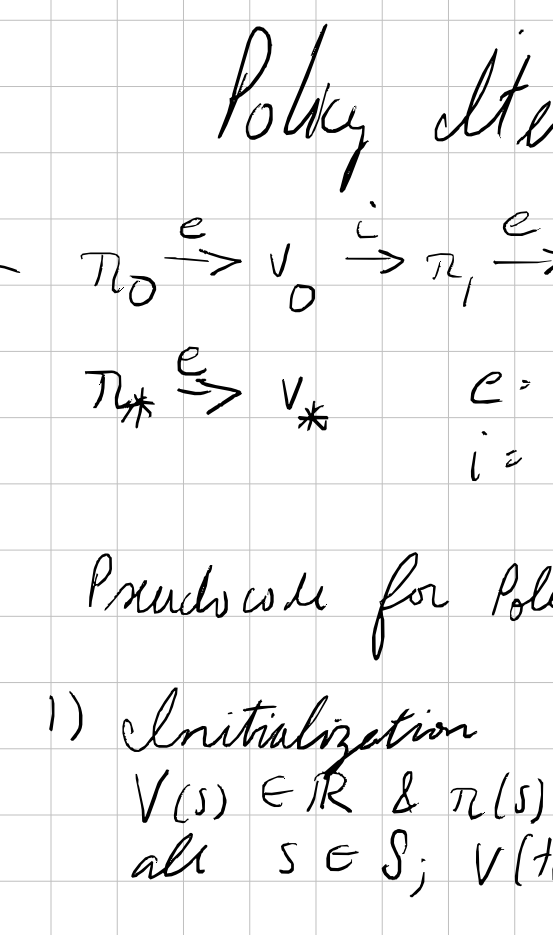 Policy Ite
π₀ →ᵉ v₀ →ⁱ π₁ →ᵉ
π* →ᵉ v*
e =
i =
Pseudocode for Pol
1) Initialization
V(s) ∈ ℝ & π(s)
all s ∈ S; V(t